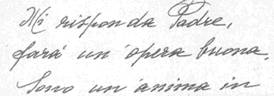 Mi risponda Padre,
farà un'opera buona.
Sono un'anima in